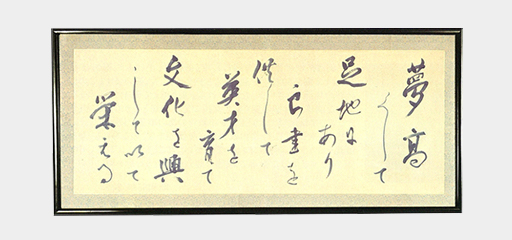 夢高
くして
足地に
あり
良書を
供して
英才を
育て
文化を興
こして以て
栄える